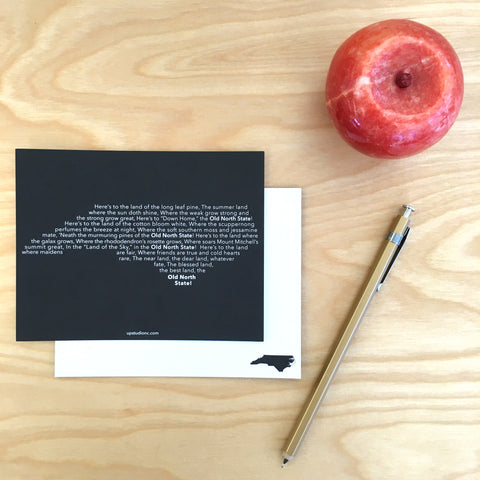 Here's to the land of the long leaf pine, The summer land
where the sun doth shine, Where the weak grow strong and
the strong grow great, Here's to "Down Home," the Old North State!
Here's to the land of the cotton bloom white, Where the scuppernong
perfumes the breeze at night, Where the soft southern moss and jessamine
mate, 'Neath the murmuring pines of the Old North State! Here's to the land where
the galax grows, Where the rhododendron's rosette grows, Where soars Mount Mitchell's
summit great, In the "Land of the Sky," in the Old North State! Here's to the land
where maidens are fair, Where friends are true and cold hearts
rare, The near land, the dear land, whatever
fate, The blessed land,
the best land, the
Old North
State!
upstudionc.com